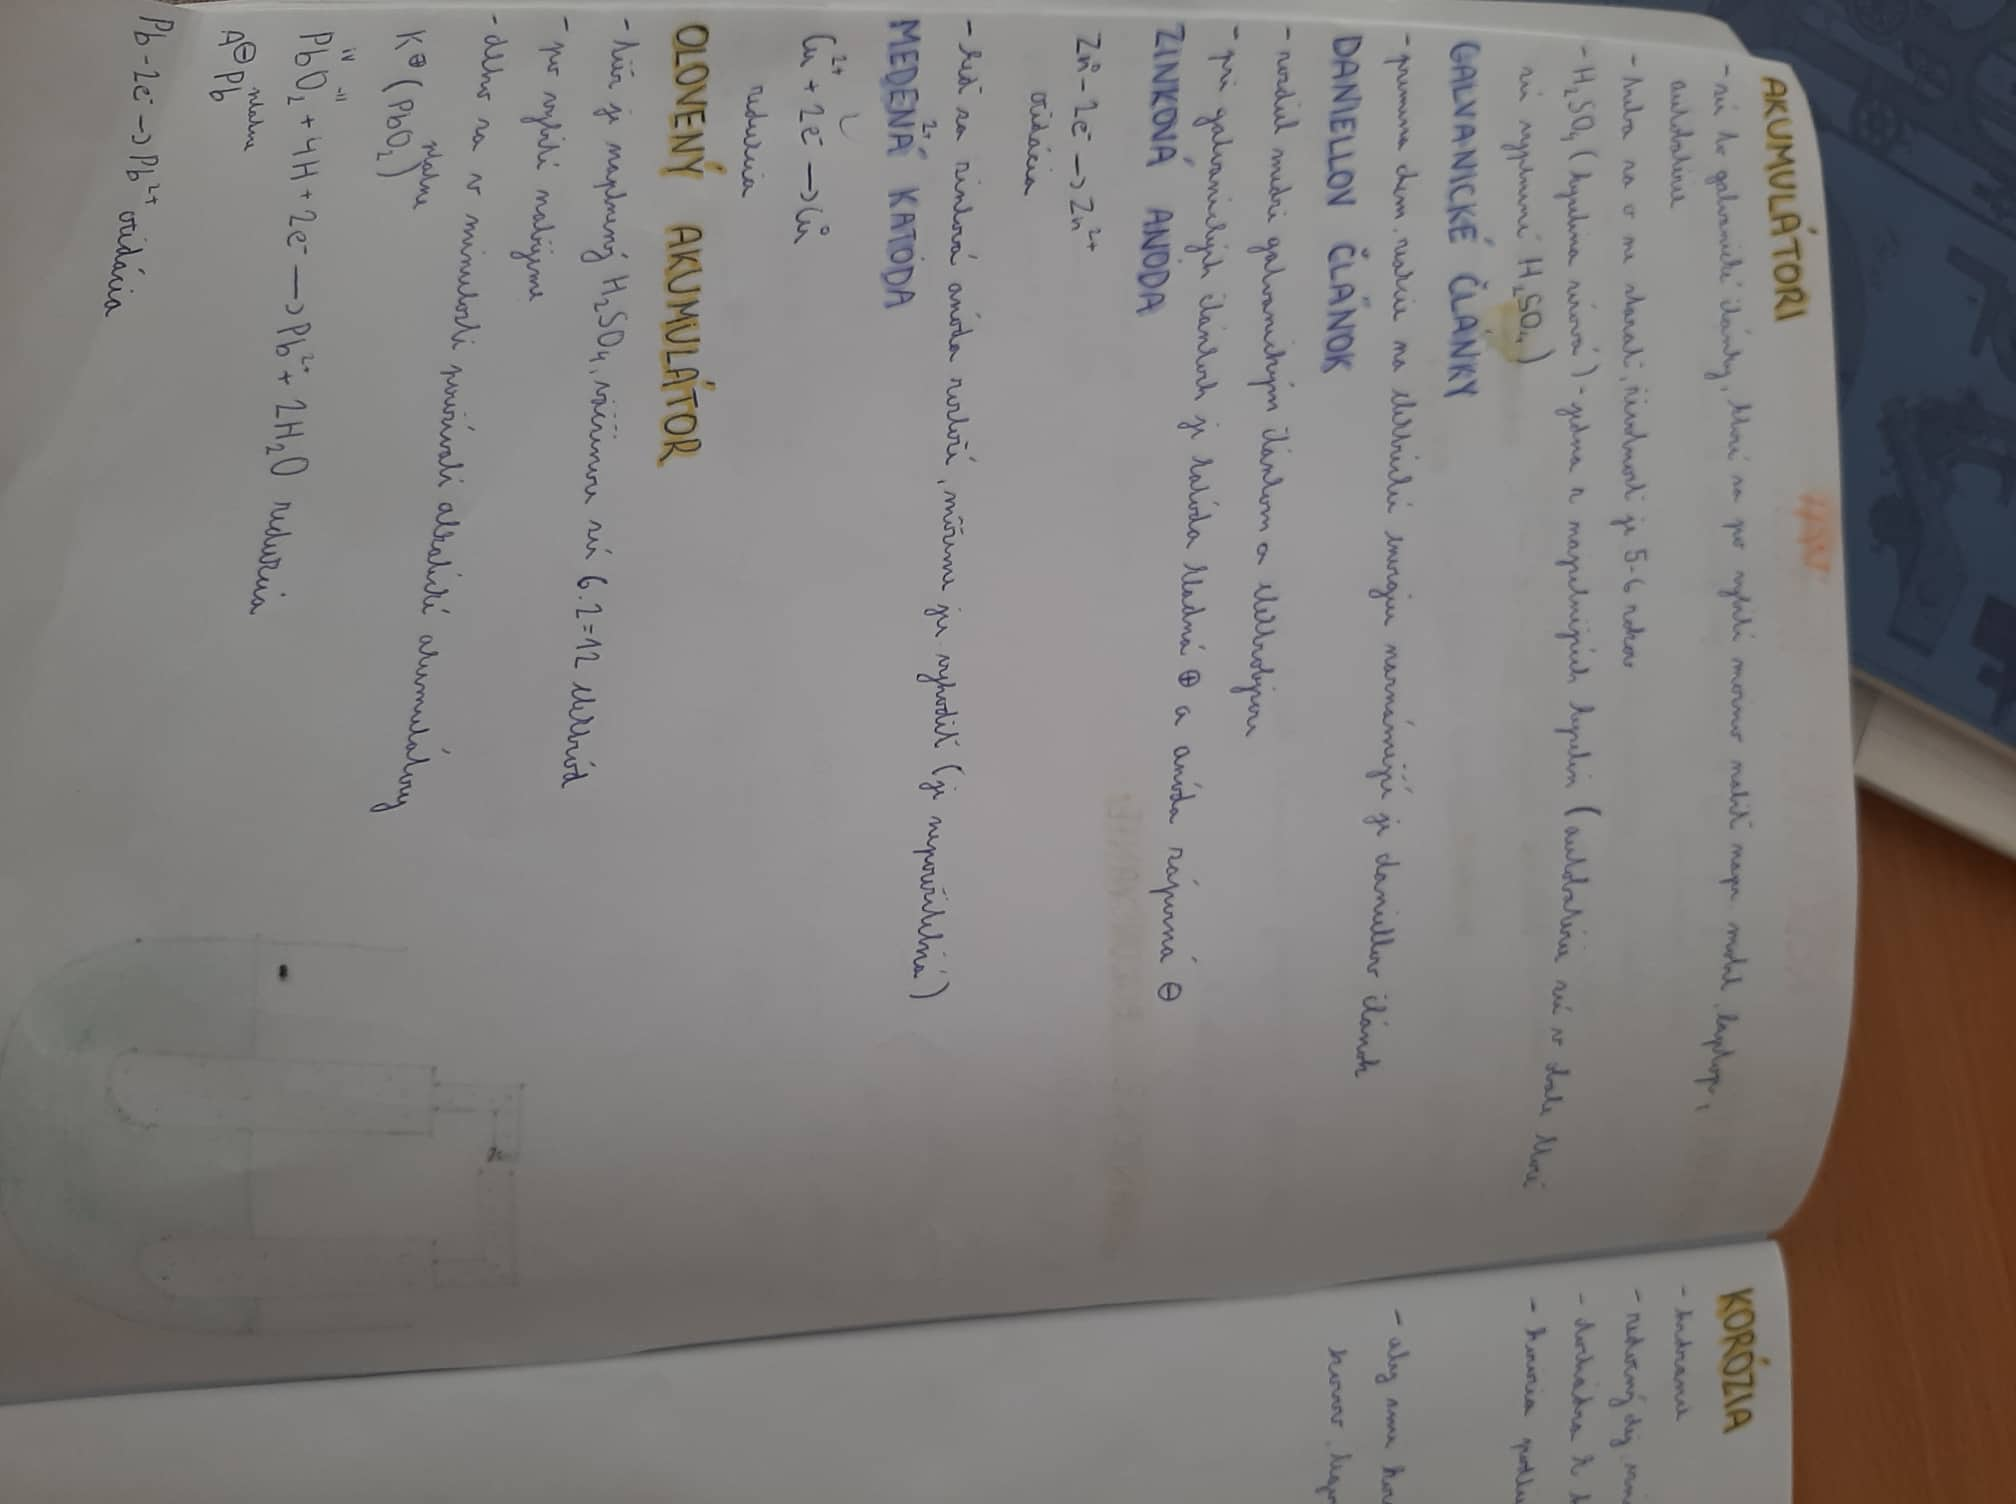 AKUMULÁTORI
- sú to galvanické články, ktoré sa po vybití možno nabiť napr mobil, laptop,
autobatérie
- treba sa o ne starať, životnosť je 5-6 rokov
- H₂SO₄ (kyselina sírová) - jedna z najsilnejších kyselín (autobatérie sú v aute ktoré
sú vyplnené H₂SO₄)
GALVANICKÉ ČLÁNKY
- premena chem. reakcie na elektrickú energiu najznámejší je daniellov článok
DANIELLOV ČLÁNOK
- rozdiel medzi galvanickým článkom a elektrolýzou
- pri galvanických článkoch je katóda kladná ⊕ a anóda záporná ⊖
ZINKOVÁ ANÓDA
Zn⁰ - 2e⁻ → Zn²⁺
oxidácia
- keď sa zinková anóda rozloží, môžeme ju vyhodiť (je nepoužiteľná)
MEDENÁ KATÓDA
2+
Cu²⁺ + 2e⁻ → Cu⁰
redukcia
OLOVENÝ AKUMULÁTOR
- kde je naplnený H₂SO₄, väčšinou sú 6.2=12 elektród
- po vybití nabíjame
- dlho sa v minulosti používali alkalické akumulátory
K⊕ (PbO₂) platňa
IV -II
PbO₂ + 4H + 2e⁻ → Pb²⁺ + 2H₂O redukcia
A⊖ Pb platňa
Pb - 2e⁻ → Pb²⁺ oxidácia
KORÓZIA
- redoxný dej
- dochádza k
- korózia
- aby sme
kovov